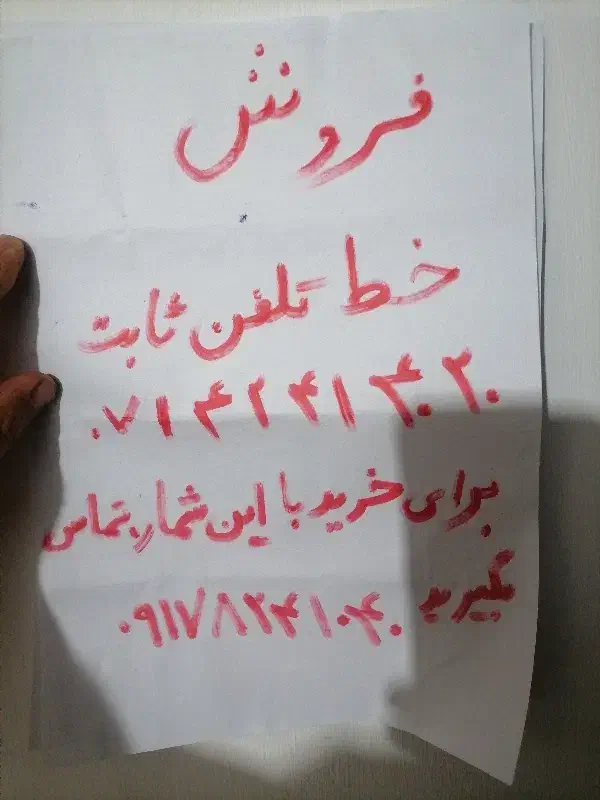 فروش
خط تلفن ثابت
۰۷۱۴۲۴۱۴۰۲۰
برای خرید با این شماره تماس
بگیرید ۰۹۱۷۸۲۴۱۰۴۰